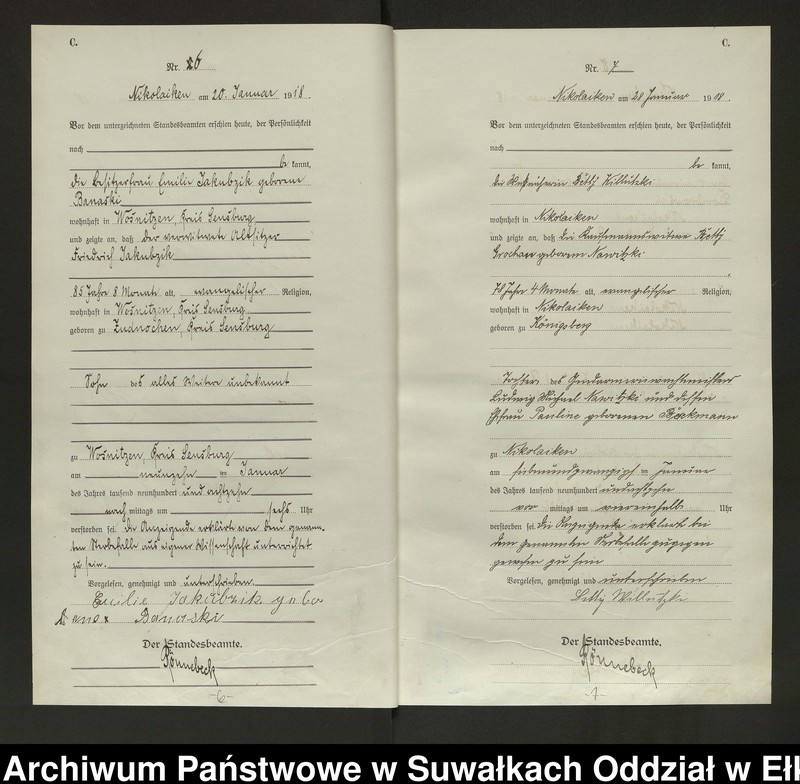 C.
Nr. 6
Nikolaiken am 20. Januar 1918.
Vor dem unterzeichneten Standesbeamten erschien heute, der Persönlichkeit
nach
be kannt,
die Besitzerfrau Emilie Jakubzik geborene
Banaski
wohnhaft in Wosnitzen, Kreis Sensburg
und zeigte an, daß der verwitwete Altsitzer
Friedrich Jakubzik
85 Jahre 8 Monate alt, evangelischer Religion,
wohnhaft in Wosnitzen, Kreis Sensburg
geboren zu Zudnochen, Kreis Sensburg
Sohn des alles Weitere unbekannt
zu Wosnitzen, Kreis Sensburg
am neunzehn ten Januar
des Jahres tausend neunhundert und achtzehn
nach mittags um sechs Uhr
verstorben sei. Die Anzeigende erklärte von dem genann-
ten Sterbefalle aus eigener Wissenschaft unterrichtet
zu sein.
Vorgelesen, genehmigt und unterschrieben.
Emilie Jakubzik gebo
rene Banaski
Der Standesbeamte.
Könnebeck
-6-
C.
Nr. 7
Nikolaiken am 28 Januar 1918.
Vor dem unterzeichneten Standesbeamten erschien heute, der Persönlichkeit
nach
be kannt,
die Betty Willutzki
wohnhaft in Nikolaiken
und zeigte an, daß die Kaufmannswitwe Betty
Grochau geborene Nawitzki
78 Jahre 4 Monate alt, evangelischer Religion,
wohnhaft in Nikolaiken
geboren zu Königsberg
Tochter des Gendarmeriewachtmeisters
Ludwig Michael Nawitzki und dessen
Ehefrau Pauline geborenen Böckmann
zu Nikolaiken
am siebenundzwanzigsten Januar
des Jahres tausend neunhundert undachtzehn
vor mittags um viereinhalb Uhr
verstorben sei. Die Anzeigende erklärte bei
dem genannten Sterbefalle zugegen
gewesen zu sein
Vorgelesen, genehmigt und unterschrieben
Betty Willutzki
Der Standesbeamte.
Könnebeck
-7-
Archiwum Państwowe w Suwałkach Oddział w Ełk